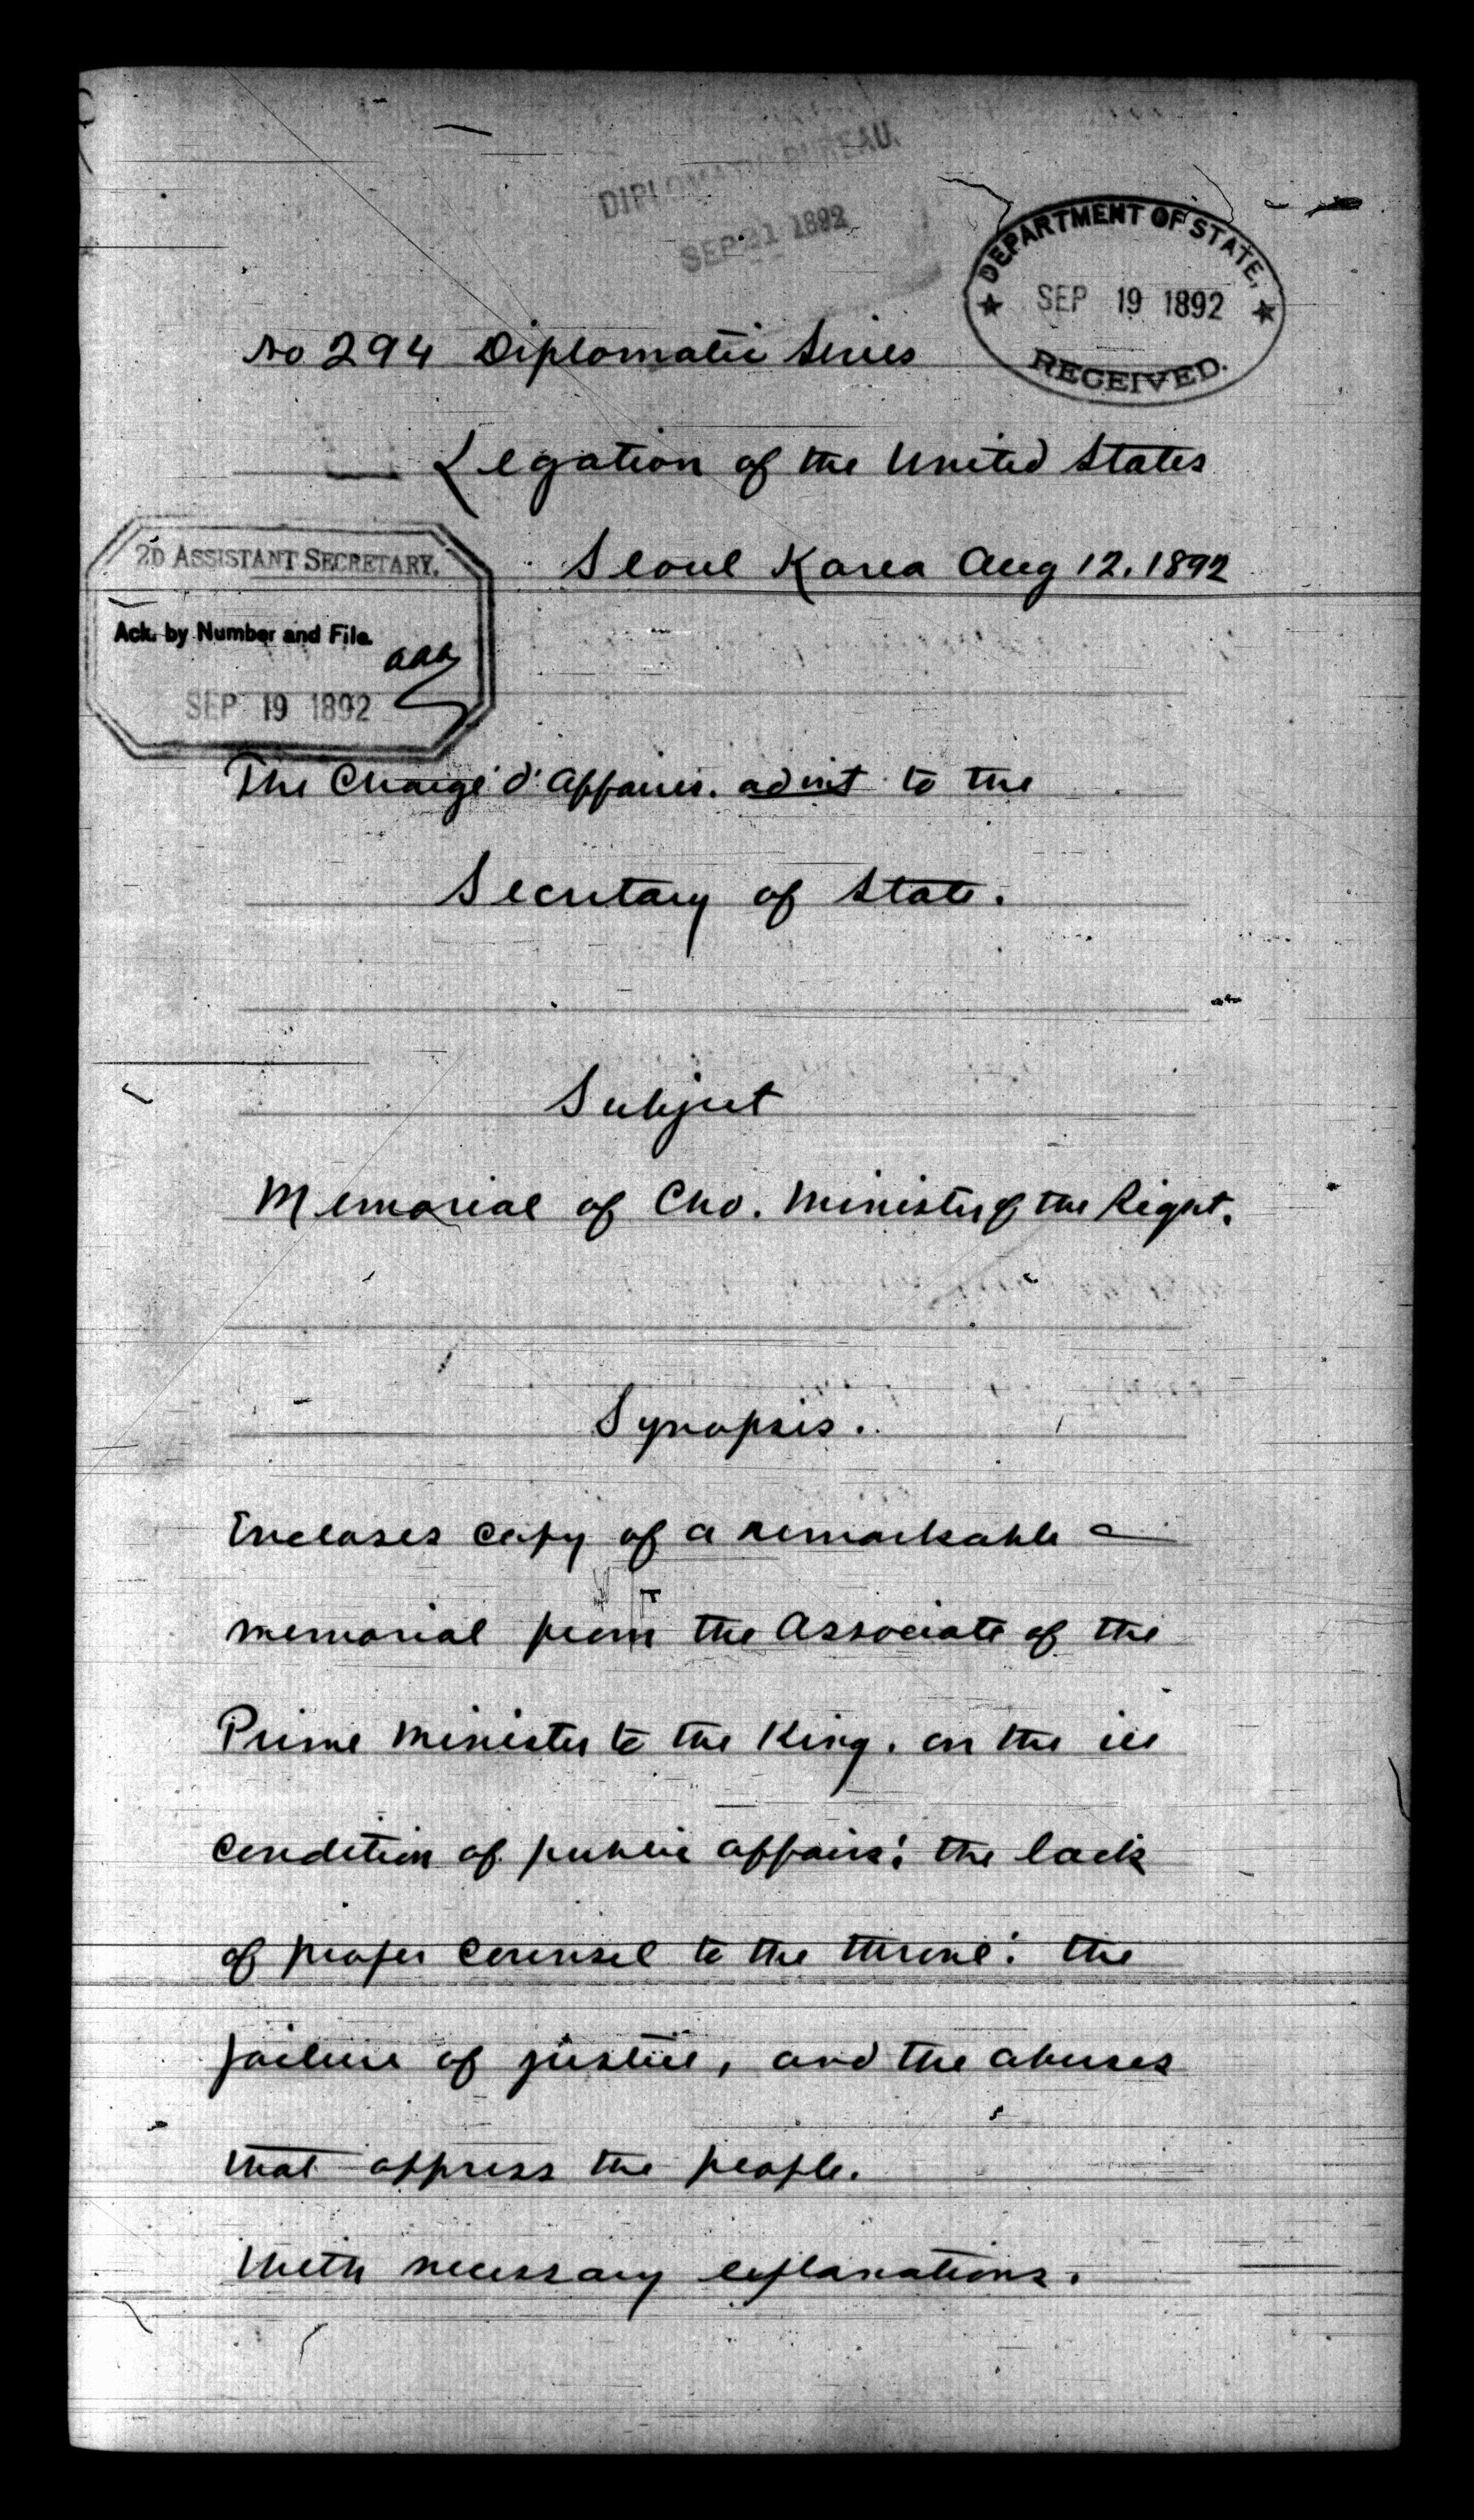 DIPLOMATIC BUREAU.
SEP 21 1892
DEPARTMENT OF STATE,
SEP 19 1892
RECEIVED.
No 294 Diplomatic Series
Legation of the United States
Seoul Korea Aug 12. 1892
2D ASSISTANT SECRETARY.
Ack. by Number and File.
AAA
SEP 19 1892
The Chargé d'Affaires. ad int to the
Secretary of State.
Subject
Memorial of Cho. Minister of the Right.
Synopsis.
Encloses copy of a remarkable
memorial from the Associate of the
Prime Minister to the King. on the ill
condition of public affairs: the lack
of proper counsel to the throne: the
failure of justice, and the abuses
that oppress the people.
With necessary explanations.